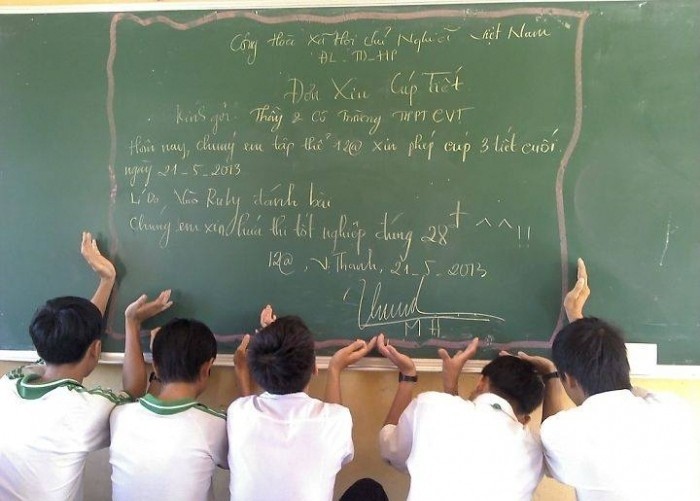 Cộng Hòa Xã Hội Chủ Nghĩa Việt Nam
ĐL - TD - HP
Đơn Xin Cúp Tiết
Kính gởi: Thầy & Cô Trường THPT CVT
Hôm nay, chúng em tập thể 12@ xin phép cúp 3 tiết cuối.
ngày 21-5-2013
Lí Do: Vào Ruby đánh bài
Chúng em xin hứa thi tốt nghiệp đúng 28+ ^^!!
12@, V.Thanh, 21-5-2013
MH